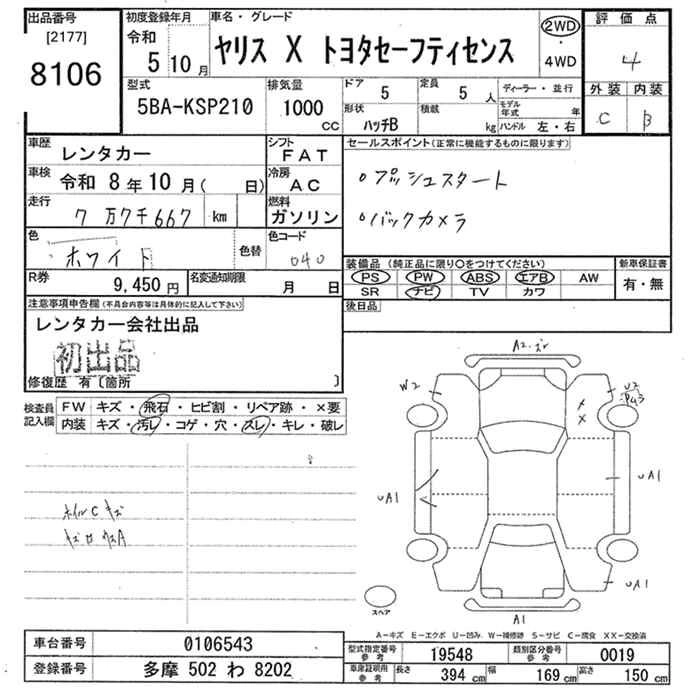 出品番号 [2177] 8106
初度登録年月 令和 5 10月
車名・グレード ヤリス X トヨタセーフティセンス
2WD・4WD
評価点 4
外装 内装
C B
型式 5BA-KSP210
排気量 1000 CC
ドア 5
定員 5 人
ディーラー・並行
モデル年式 年
形状 ハッチB
積載 kg
ハンドル 左・右
車歴 レンタカー
シフト FAT
車検 令和 8年10月( 日)
冷房 AC
走行 7万7千667 km
燃料 ガソリン
色 ホワイト 色替
色コード 040
R券 9,450円
名変通知期限 月 日
セールスポイント(正常に機能するものに限ります)
○プッシュスタート
○バックカメラ
装備品(純正品に限り○をつけてください)
PS PW ABS エアB AW
SR ナビ TV カワ
新車保証書 有・無
後日品
注意事項申告欄(不具合内容等は具体的に記入して下さい)
レンタカー会社出品
初出品
修復歴 有〔箇所 〕
検査員記入欄
FW キズ・飛石・ヒビ割・リペア跡・×要
内装 キズ・汚レ・コゲ・穴・スレ・キレ・破レ
ホイルC キズ
A2・
W2
U2
UA1
UA1
UA1
A1
スペア
A-キズ E-エクボ U-凹み W-補修跡 S-サビ C-腐食 XX-交換済
車台番号 0106543
登録番号 多摩 502 わ 8202
型式指定番号 参考 19548
類別区分番号 参考 0019
車庫証明用 参考 長さ 394 cm 幅 169 cm 高さ 150 cm